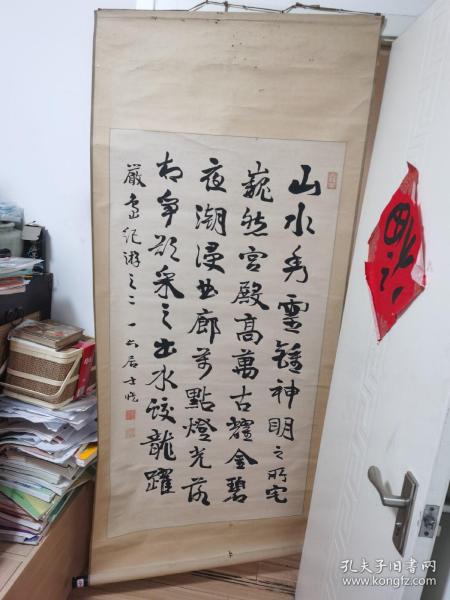 山水秀靈鍾神明之所宅
巍然宮殿高萬古耀金碧
夜潮浸曲廊萬點燈光落
相爭欲采之出水蛟龍躍
嚴島紀游之二 一六居士
福
孔夫子旧书网
www.kongfz.com